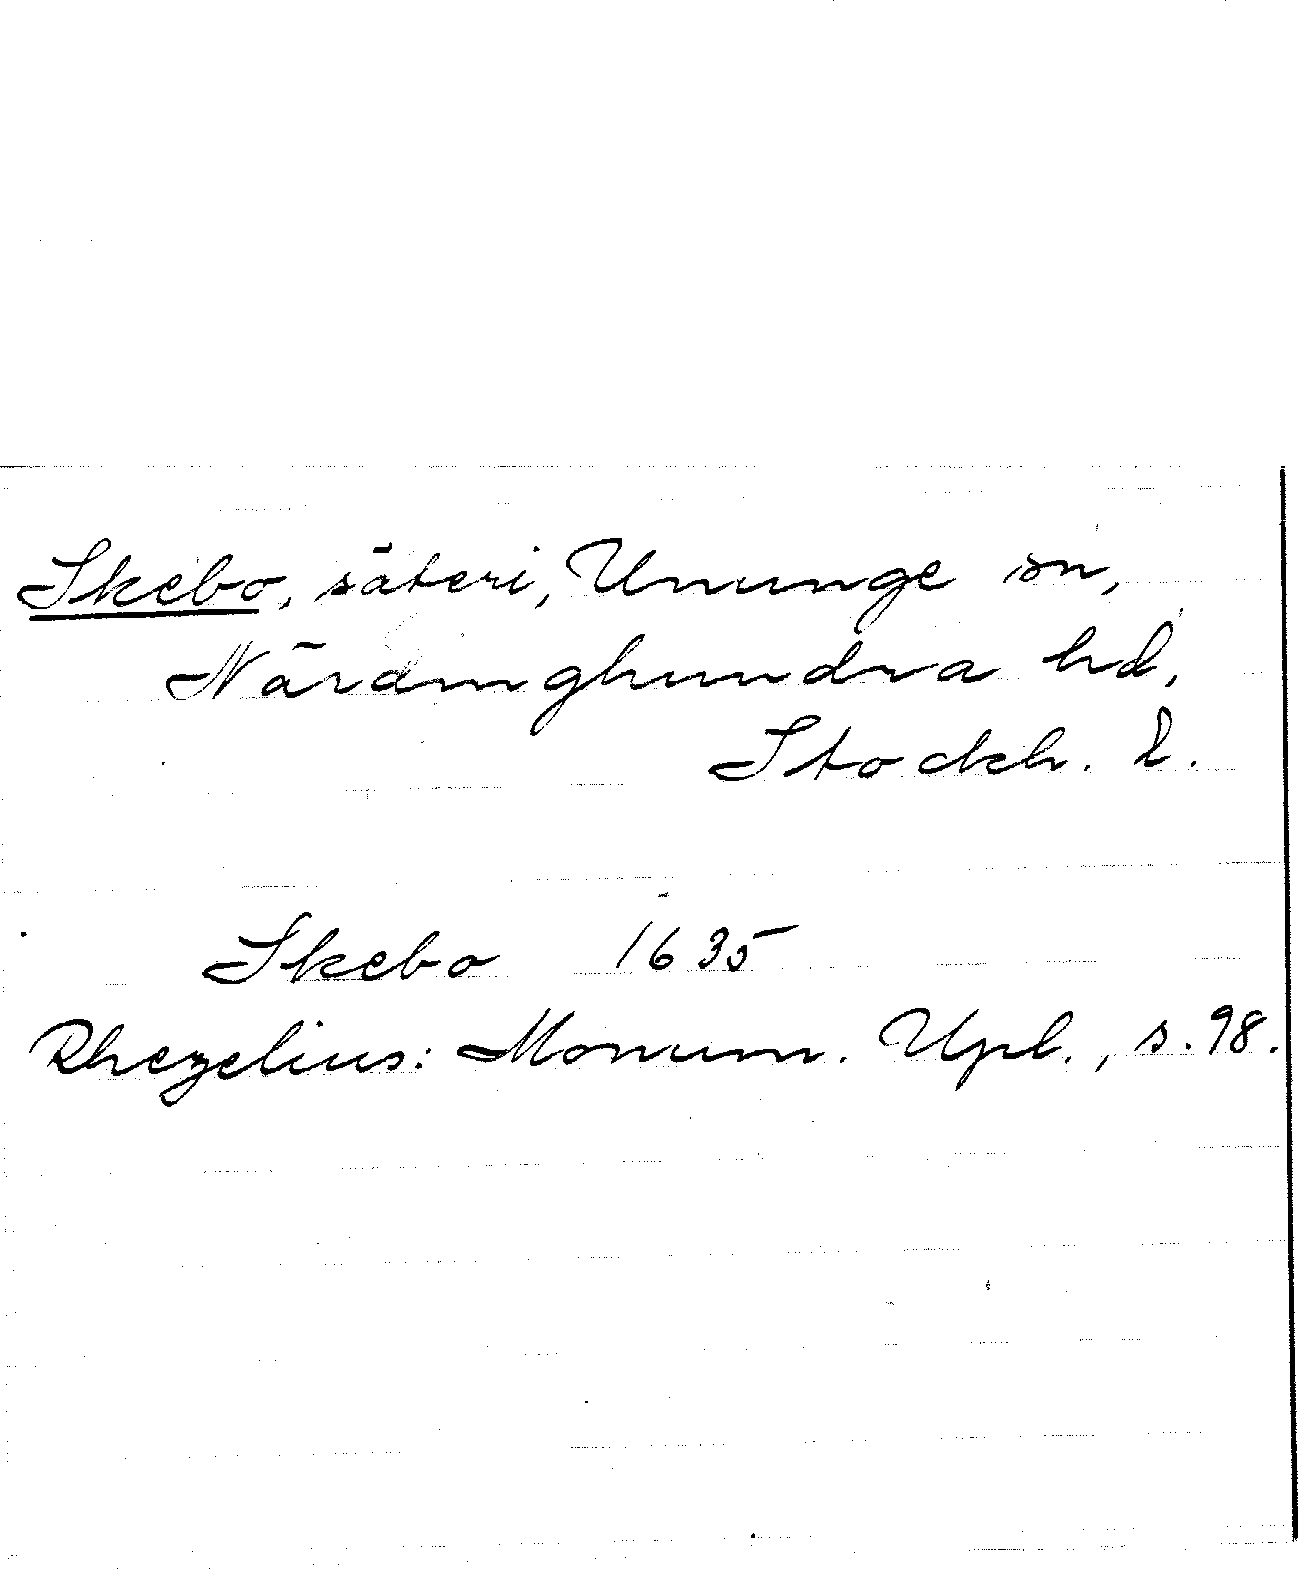 Skebo, säteri, Ununge sn,
Närdinghundra hd,
Stockh. l.
Skebo 1635
Rhezelius: Monum. Upl., s. 98.